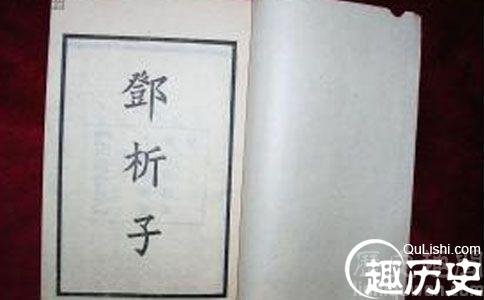 鄧析子
QuLishi.com
趣历史